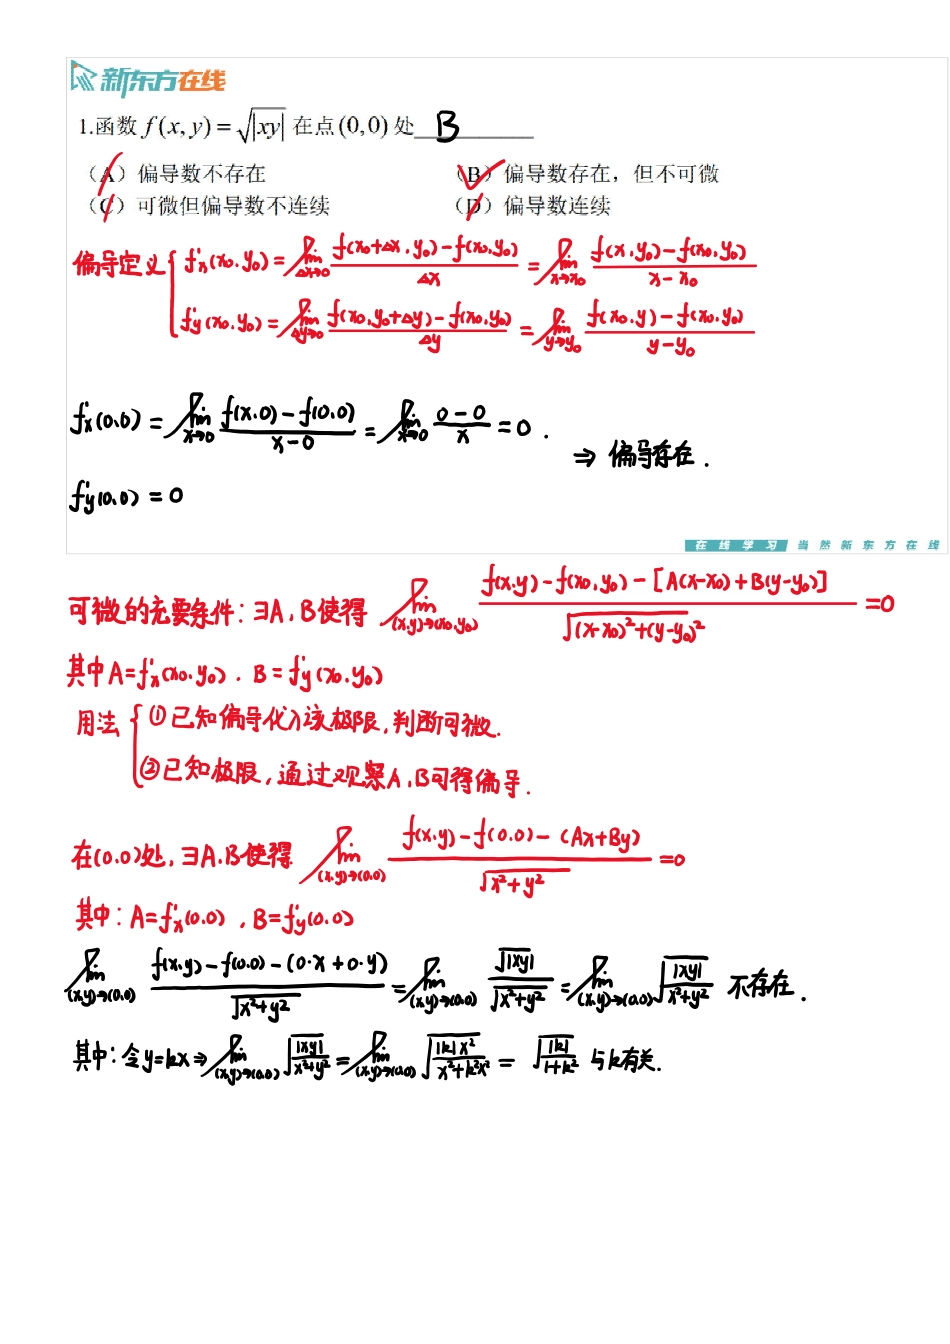 新东方在线
1.函数 f(x, y) = √|xy| 在点(0,0)处 B
（A）偏导数不存在 （B）偏导数存在，但不可微
（C）可微但偏导数不连续 （D）偏导数连续
偏导定义 { f'x(x₀,y₀) = lim Δx→0 [f(x₀+Δx, y₀) − f(x₀,y₀)] / Δx = lim x→x₀ [f(x,y₀) − f(x₀,y₀)] / (x − x₀)
f'y(x₀,y₀) = lim Δy→0 [f(x₀,y₀+Δy) − f(x₀,y₀)] / Δy = lim y→y₀ [f(x₀,y) − f(x₀,y₀)] / (y − y₀)
f'x(0,0) = lim x→0 [f(x,0) − f(0,0)] / (x − 0) = lim x→0 (0 − 0) / x = 0 .
⇒ 偏导存在 .
f'y(0,0) = 0
在线学习 当然新东方在线
可微的充要条件: ∃A, B使得 lim (x,y)→(x₀,y₀) {f(x,y) − f(x₀,y₀) − [A(x−x₀)+B(y−y₀)]} / √((x−x₀)²+(y−y₀)²) = 0
其中 A = f'x(x₀,y₀) , B = f'y(x₀,y₀)
用法 { ①已知偏导代入该极限,判断可微.
②已知极限,通过观察A,B可得偏导.
在(0,0)处, ∃A,B使得 lim (x,y)→(0,0) [f(x,y) − f(0,0) − (Ax+By)] / √(x²+y²) = 0
其中: A = f'x(0,0) , B = f'y(0,0)
lim (x,y)→(0,0) [f(x,y) − f(0,0) − (0·x + 0·y)] / √(x²+y²) = lim (x,y)→(0,0) √|xy| / √(x²+y²) = lim (x,y)→(0,0) √(|xy| / (x²+y²)) 不存在 .
其中: 令y=kx ⇒ lim (x,y)→(0,0) √(|xy| / (x²+y²)) = lim (x,y)→(0,0) √(|k|x² / (x²+k²x²)) = √(|k| / (1+k²)) 与k有关.